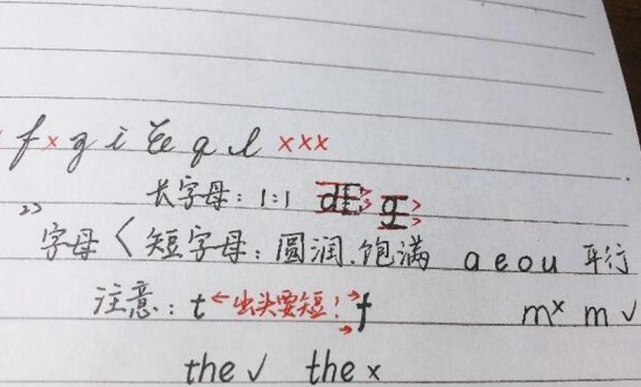 f × g i q l ×××
长字母：1:1 d g
2> 字母 < 短字母：圆润.饱满 a e o u 平行
注意：t ← 出头要短! → f m× m ✓
the ✓ the ×